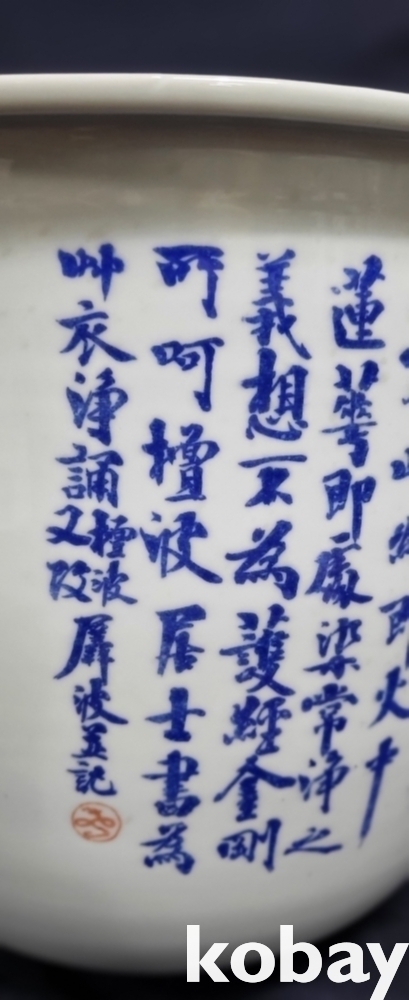 即火中
蓮華即處染常淨之
義想不為護經金剛
所呵檀波居士書為
艸衣淨誦檀波
又改犀波並記
kobay